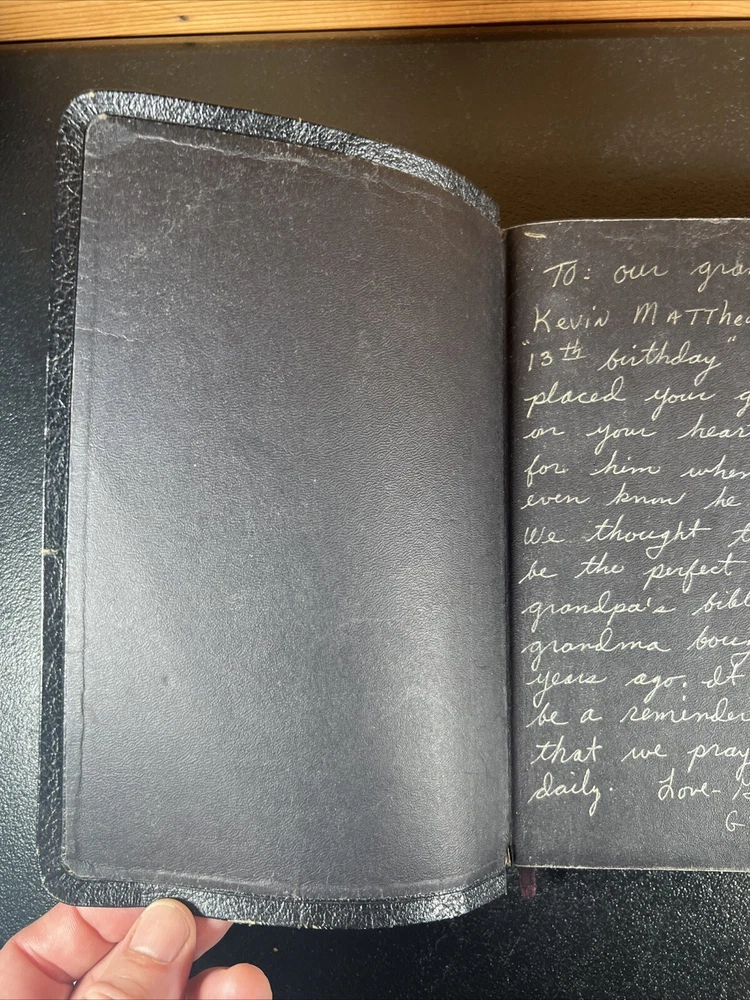 To: our gra
Kevin MATThe
"13th birthday"
placed your g
on your hear
for him when
even know he
We thought t
be the perfect
grandpa's bibl
grandma boug
years ago. It
be a reminder
that we pray
daily. Love- G
G